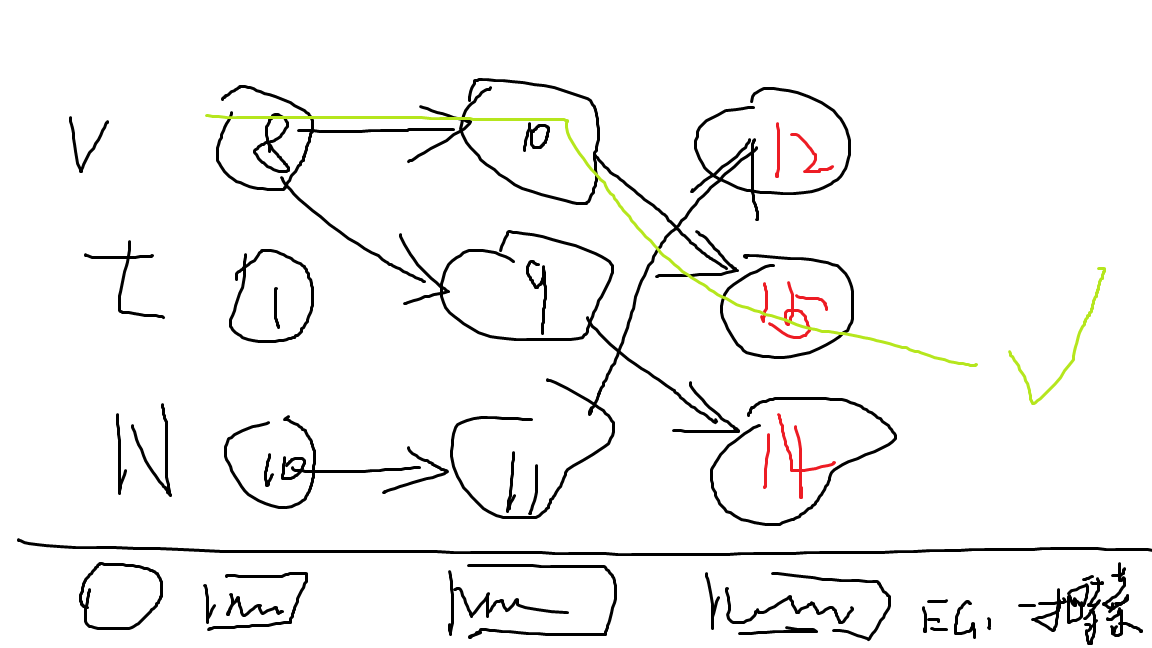 V 8 10 12
t 1 9 15
N 10 11 14
EG.